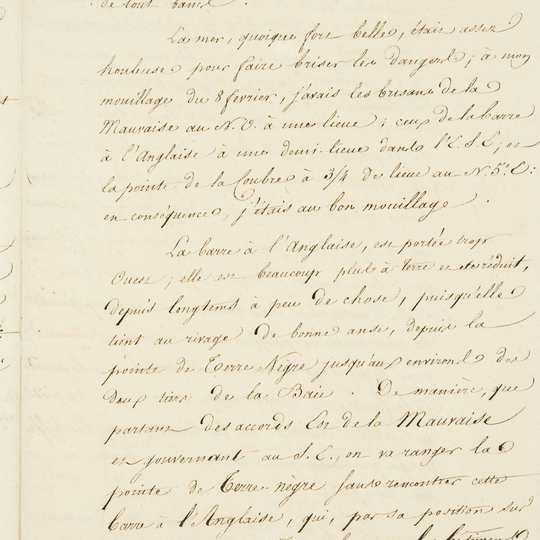 de tout
La mer, quoique fort belle, était assez
houleuse pour faire briser les dangers; à mon
mouillage du 8 février, j'avais les brisans de la
Mauvaise au N.O. à une lieue; ceux de la barre
à l'Anglaise à une demi-lieue dans l'E.S.E; et
la pointe de la Coubre à 3/4 de lieue au N. 5° E:
en conséquence, j'étais au bon mouillage.
La barre à l'Anglaise, est portée trop
Ouest; elle est beaucoup plus à terre et réduit,
depuis longtems à peu de chose, puisqu'elle
tient au rivage de bonne anse, depuis la
pointe de Terre Nègre jusqu'aux environs des
Deux tiers de la Baie. De manière, que
partant des accords Est de la Mauvaise
et gouvernant au S.E, on va ranger la
pointe de Terre nègre sans rencontrer cette
barre à l'Anglaise, qui, par sa position sur